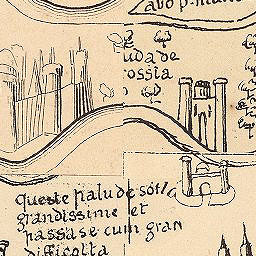 uda de
ossia
queste palude sõt la
grandissime et
passase cum gran
difficolta